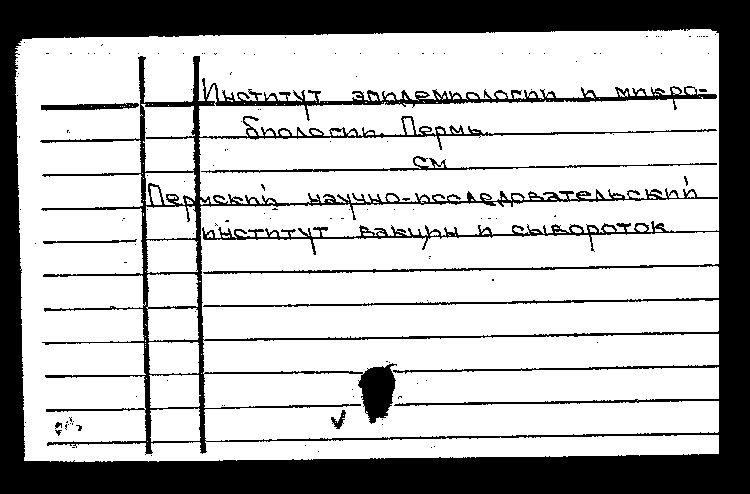 Институт эпидемиологии и микро-
биологии. Пермь
см
Пермский научно-исследовательский
институт вакцин и сывороток